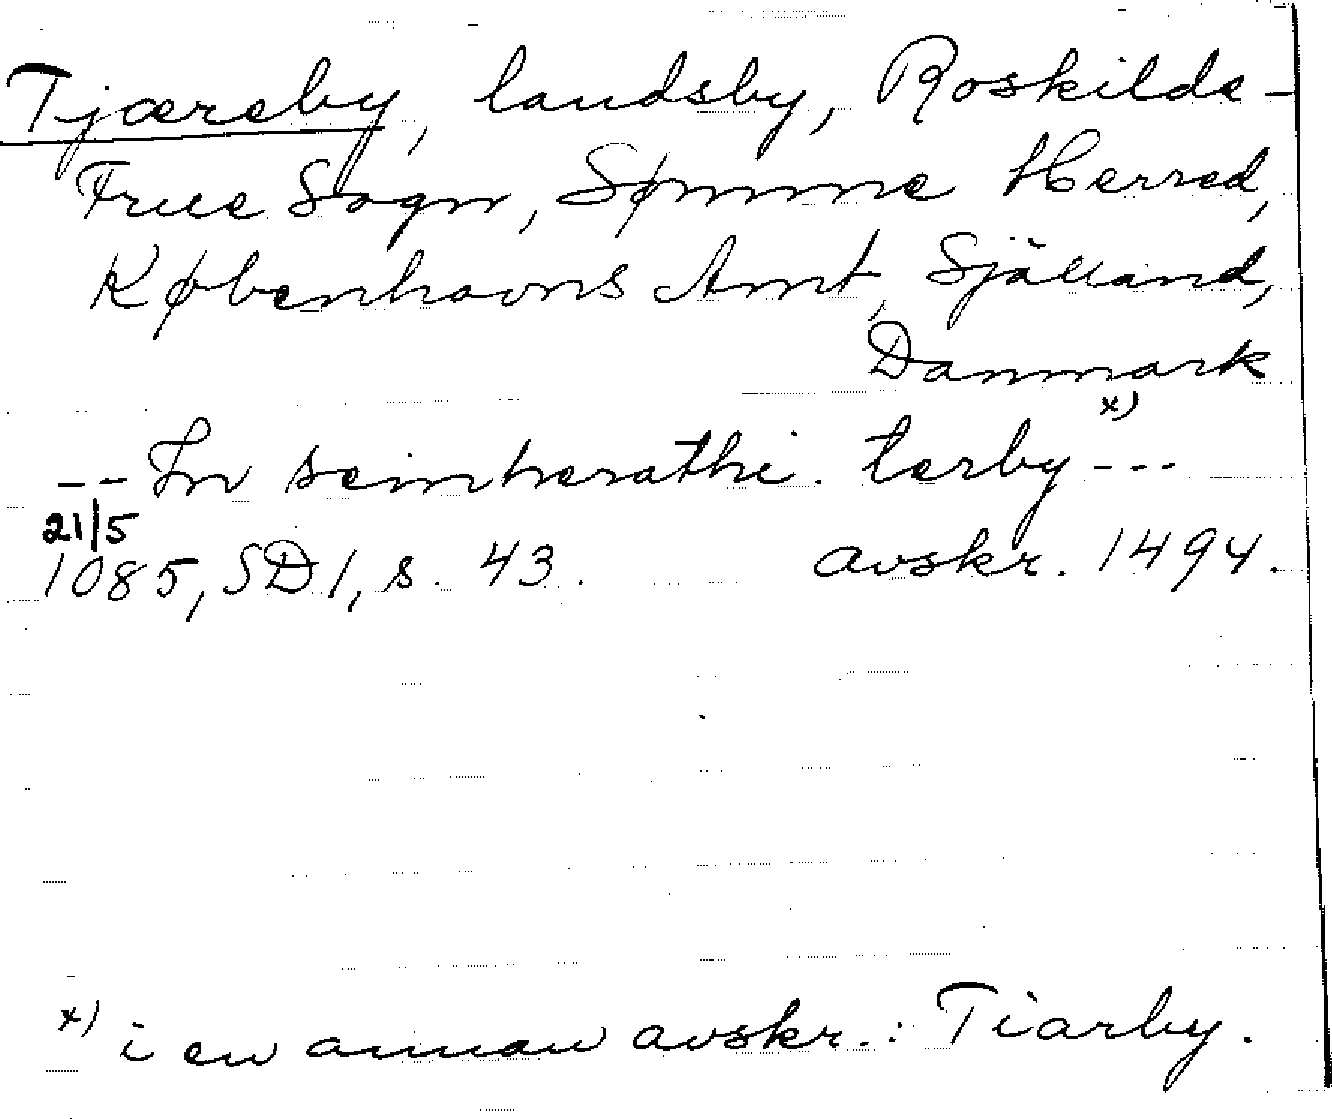 Tjæreby, landsby, Roskilde-
Frue Sogn, Sømme Herred,
Københavns Amt, Själland,
Danmark
x)
-- In seimherathi. terby ---
21/5
1085, SD 1, s. 43. avskr. 1494.
x) i en annan avskr.: Tiarby.